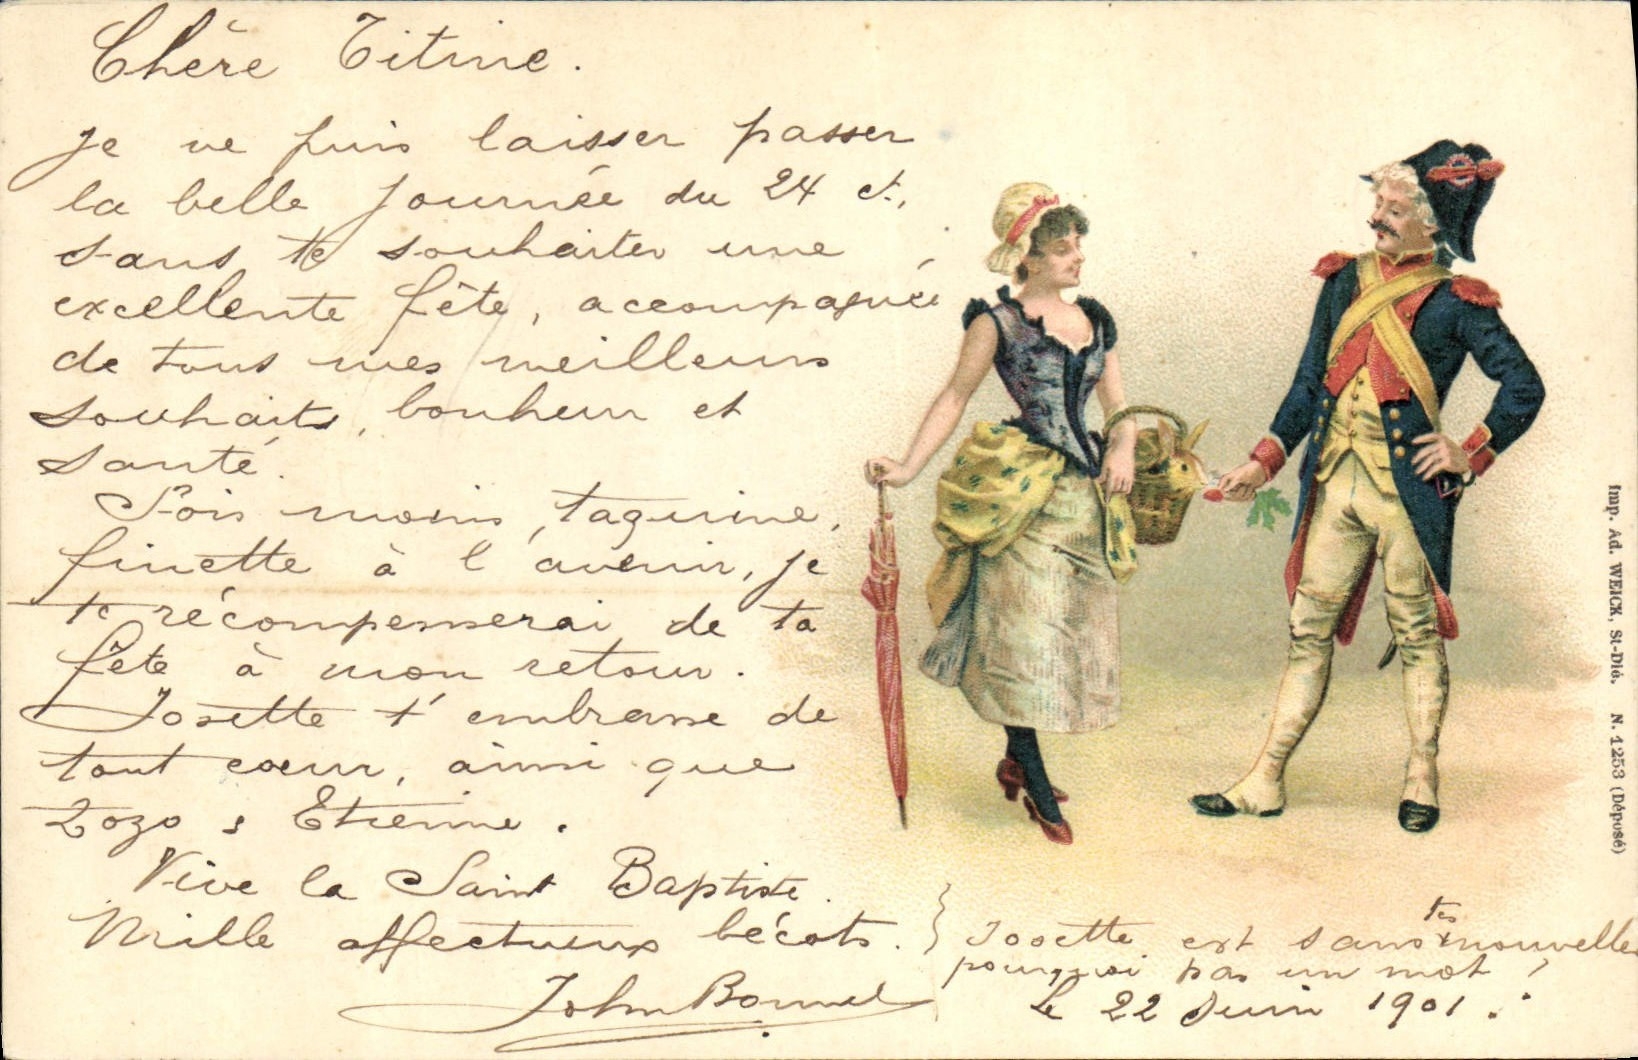 Chère Titine.
Je ne puis laisser passer
la belle journée du 24 ct,
sans te souhaiter une
excellente fête, accompagnée
de tous mes meilleurs
souhaits, bonheur et
santé.
Sois moins taquine,
finette à l'avenir, je
te récompenserai de ta
fête à mon retour.
Josette t'embrasse de
tout cœur, ainsi que
Zozo & Etienne.
Vive la Saint Baptiste.
Mille affectueux bécots.
John Bonnel
Josette est sans tes nouvelles
pourquoi pas un mot ?
Le 22 Juin 1901.
Imp. Ad. WEICK, St-Dié. N. 1253 (Déposé)